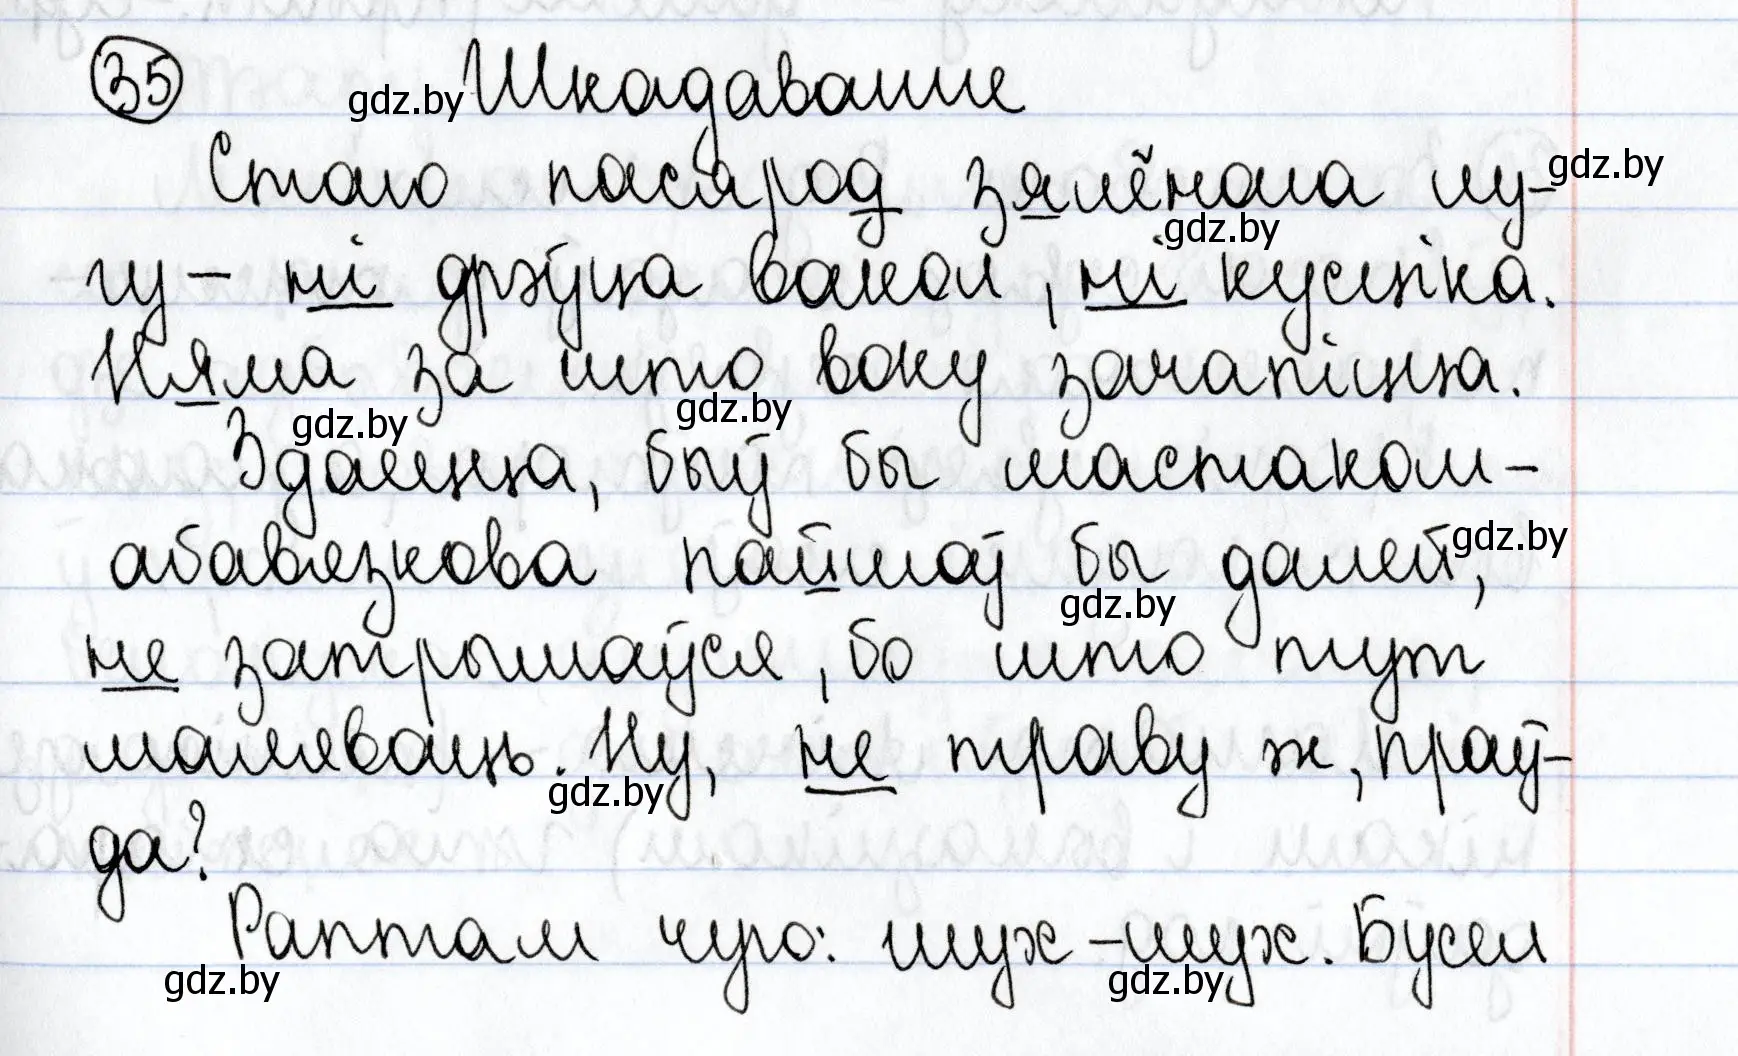 35 gdz.by Шкадаванне
Стаю пасярод зялёнага лу- gdz.by
гу – ні дрэўца вакол, ні кусціка. gdz.by
Няма за што воку зачапіцца.
gdz.by gdz.by
Здаецца, быў бы мастаком –
абавязкова пайшоў бы далей, gdz.by
не затрымаўся, бо што тут gdz.by
маляваць. Ну, не траву ж, праў-
gdz.by
да?
Раптам чую: шух-шух. Бусел
gdz.by gdz.by